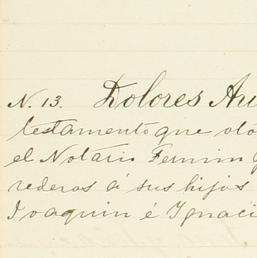 N. 13. Dolores Au
testamento que oto
el Notario Fermin
rederos á sus hijos
Joaquin é Ignaci